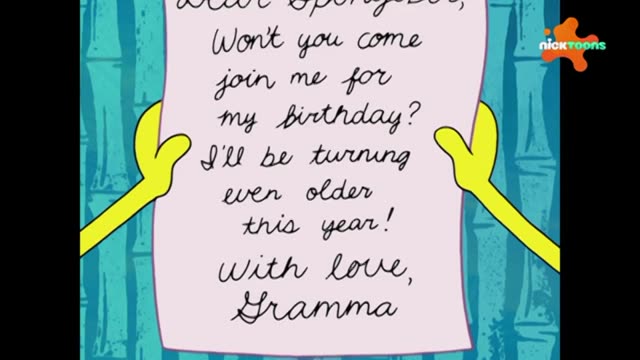 Dear SpongeBob,
Won't you come
join me for
my birthday?
I'll be turning
even older
this year!
With love,
Gramma
nicktoons